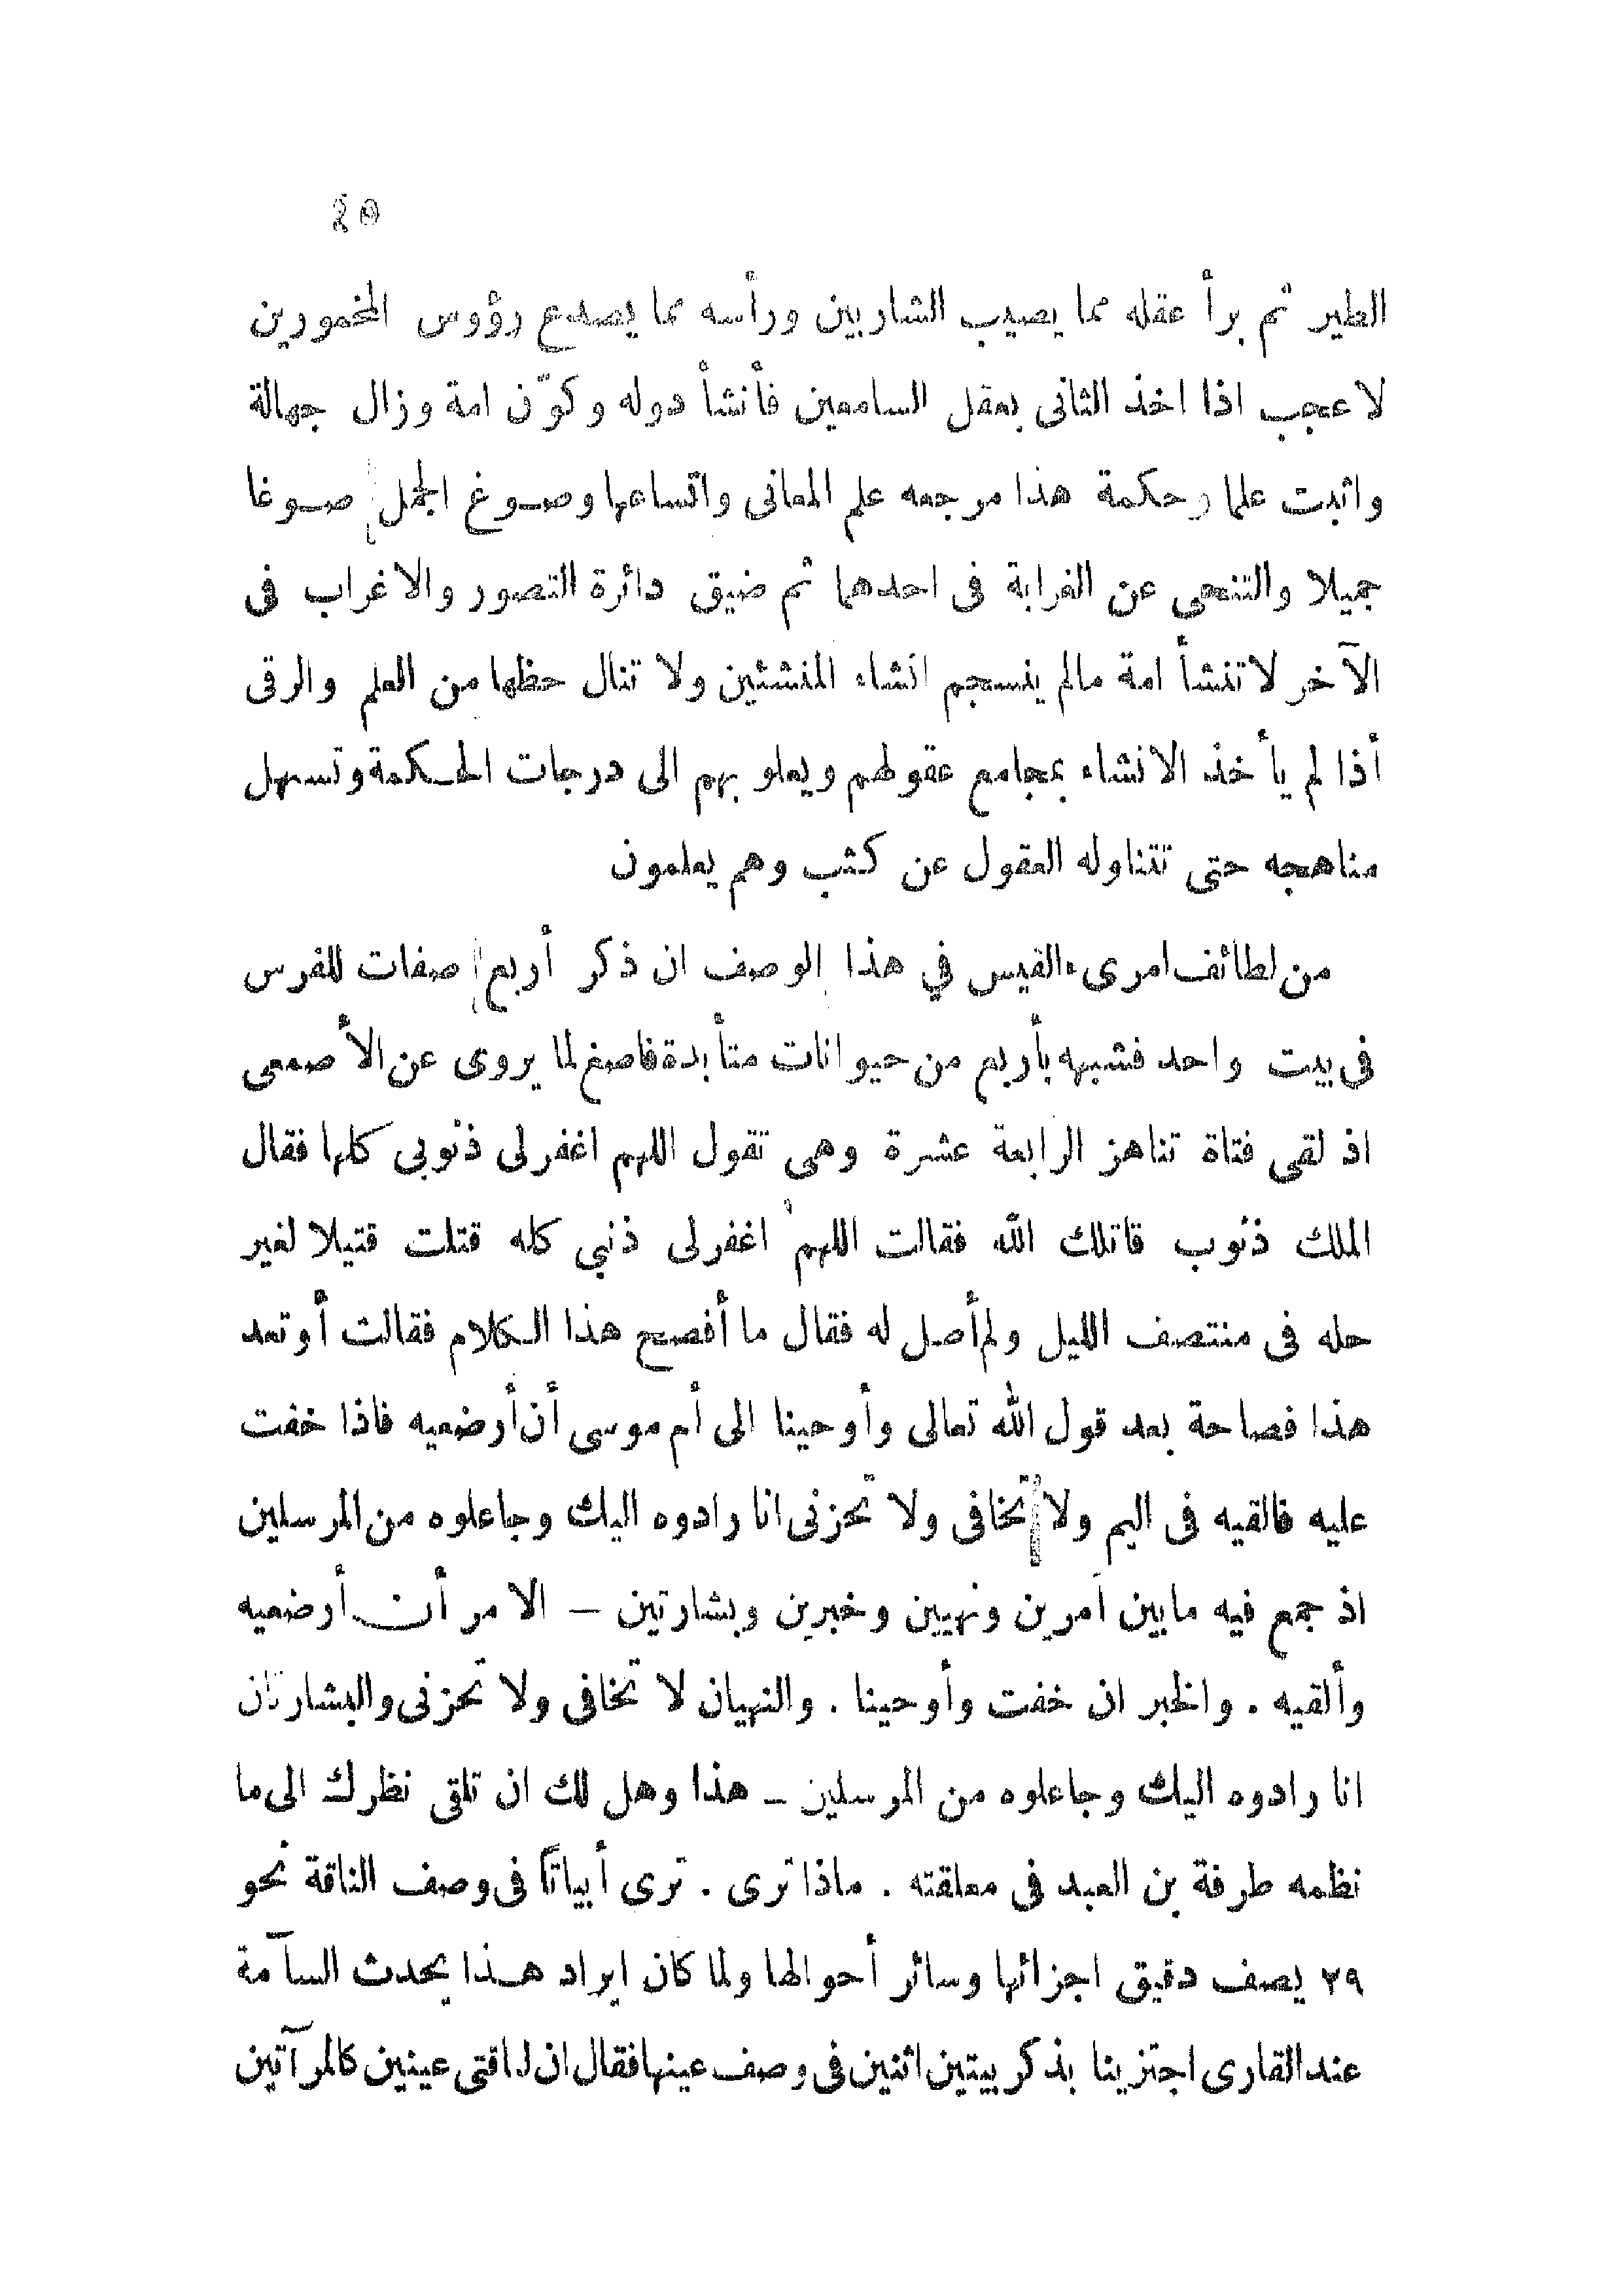 ٤٥
الطير ثم برأ عقله مما يصيب الشاربين ورأسه مما يصدع رؤوس المخمورين
لا عجب اذا اخذ الثانى بعقل السامعين فأنشأ دوله وكوّن امة وزال جهالة
واثبت علما وحكمة هذا مرجعه علم المعانى واتساعها وصوغ الجمل صوغا
جميلا والتنحى عن الغرابة فى احدهما ثم ضيق دائرة التصور والاغراب فى
الآخر لا تنشأ امة مالم ينسجم انشاء المنشئين ولا تنال حظها من العلم والرقى
أذا لم يأخذ الانشاء بمجامع عقولهم ويعلو بهم الى درجات الحكمة وتسهل
مناهجه حتى تتناوله العقول عن كثب وهم يعلمون
من لطائف امرىء القيس في هذا الوصف ان ذكر أربع صفات للفرس
فى بيت واحد فشبهه بأربع من حيوانات متأبدة فاصغ لما يروى عن الأصمعى
اذ لقى فتاة تناهز الرابعة عشرة وهى تقول اللهم اغفرلى ذنوبى كلها فقال
الملك ذنوب قاتلك الله فقالت اللهم اغفرلى ذنبي كله قتلت قتيلا لغير
حله فى منتصف الليل ولم أصل له فقال ما أفصح هذا الكلام فقالت أو تعد
هذا فصاحة بعد قول الله تعالى وأوحينا الى أم موسى أن أرضعيه فاذا خفت
عليه فالقيه فى اليم ولا تخافى ولا تحزنى انا رادوه اليك وجاعلوه من المرسلين
اذ جمع فيه مابين أمرين ونهيين وخبرين وبشارتين – الامر أن أرضعيه
وألقيه . والخبر ان خفت وأوحينا . والنهيان لا تخافى ولا تحزنى والبشارتان
انا رادوه اليك وجاعلوه من المرسلين – هذا وهل لك ان تلقى نظرك الى ما
نظمه طرفة بن العبد فى معلقته . ماذا ترى . ترى أبياتاً فى وصف الناقة نحو
٢٩ يصف دقيق اجزائها وسائر أحوالها ولما كان ايراد هذا يحدث السآمة
عند القارى اجتزينا بذكر بيتين اثنين فى وصف عينها فقال ان لناقتى عينين كالمرآتين